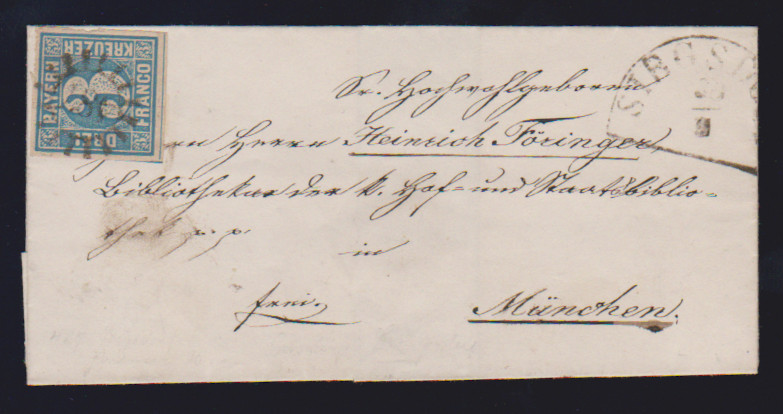 BAYERN
KREUZER
FRANCO
DREI
3
SIEGS
Sr. Hochwohlgeboren
Herrn Heinrich Föringer,
Bibliothekar der k. Hof= und Staatsbiblio=
thek p. p.
in
frei.
München.